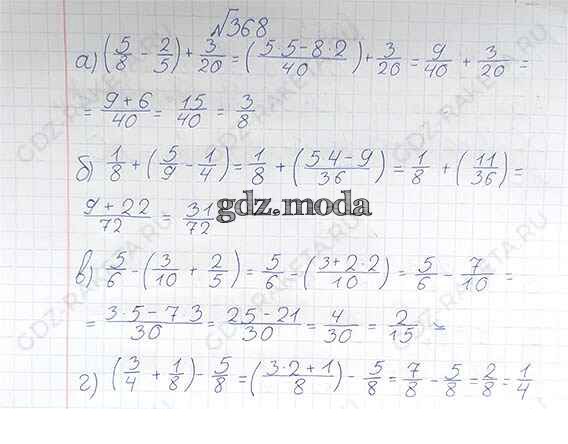 №368
а) (5/8 - 2/5) + 3/20 = (5·5-8·2/40) + 3/20 = 9/40 + 3/20 =
= 9+6/40 = 15/40 = 3/8
б) 1/8 + (5/9 - 1/4) = 1/8 + (5 4-9/36) = 1/8 + (11/36) =
9+22/72 = 31/72
gdz.moda
в) 5/6 - (3/10 + 2/5) = 5/6 = (3+2·2/10) = 5/6 - 7/10 =
= 3·5-7 3/30 = 25-21/30 = 4/30 = 2/15
г) (3/4 + 1/8) - 5/8 = (3·2+1/8) - 5/8 = 7/8 - 5/8 = 2/8 = 1/4
GDZ-RAKETA.RU